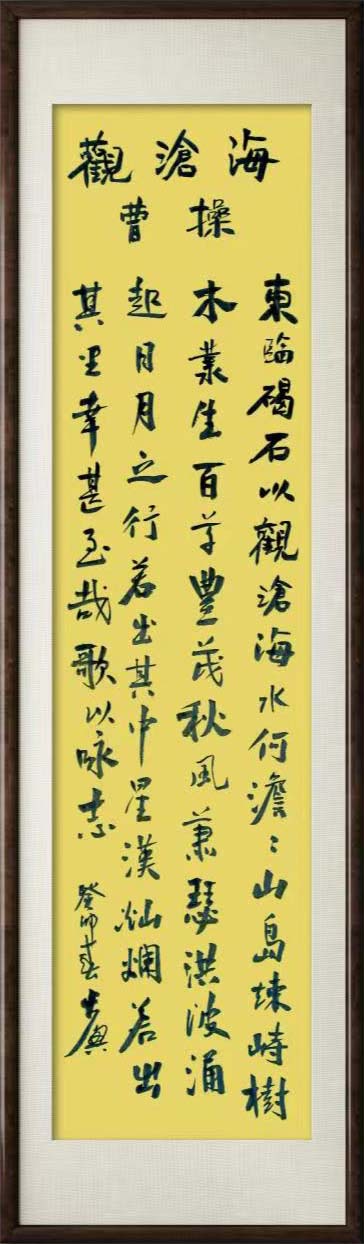 觀滄海
曹操
東臨碣石以觀滄海水何澹〻山島竦峙樹
木叢生百草豐茂秋風蕭瑟洪波涌
起日月之行若出其中星漢灿爛若出
其里幸甚至哉歌以咏志
癸卯春